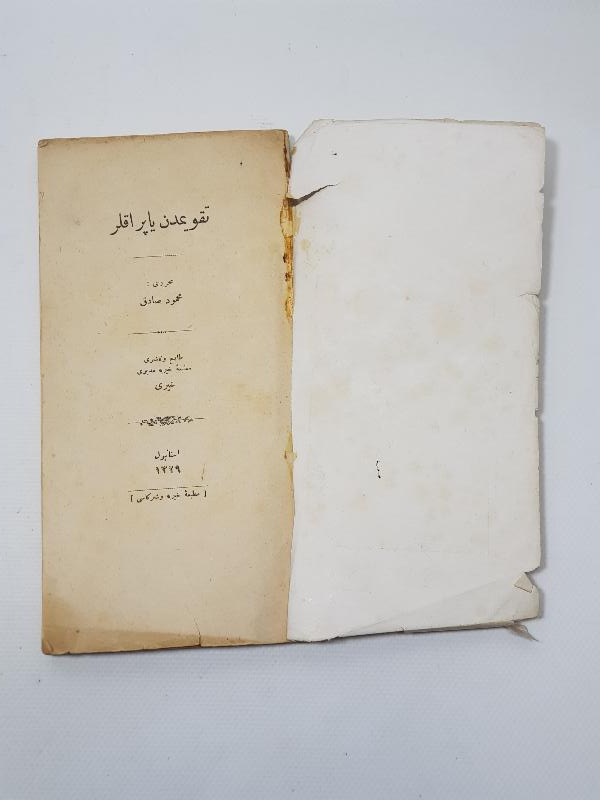 تقویمدن یاپراقلر
محرری :
محمود صادق
طابع وناشری
مطبعهٔ خیریه مدیری
خیری
استانبول
١٣٢٩
[ مطبعهٔ خیریه وشرکاسی ]